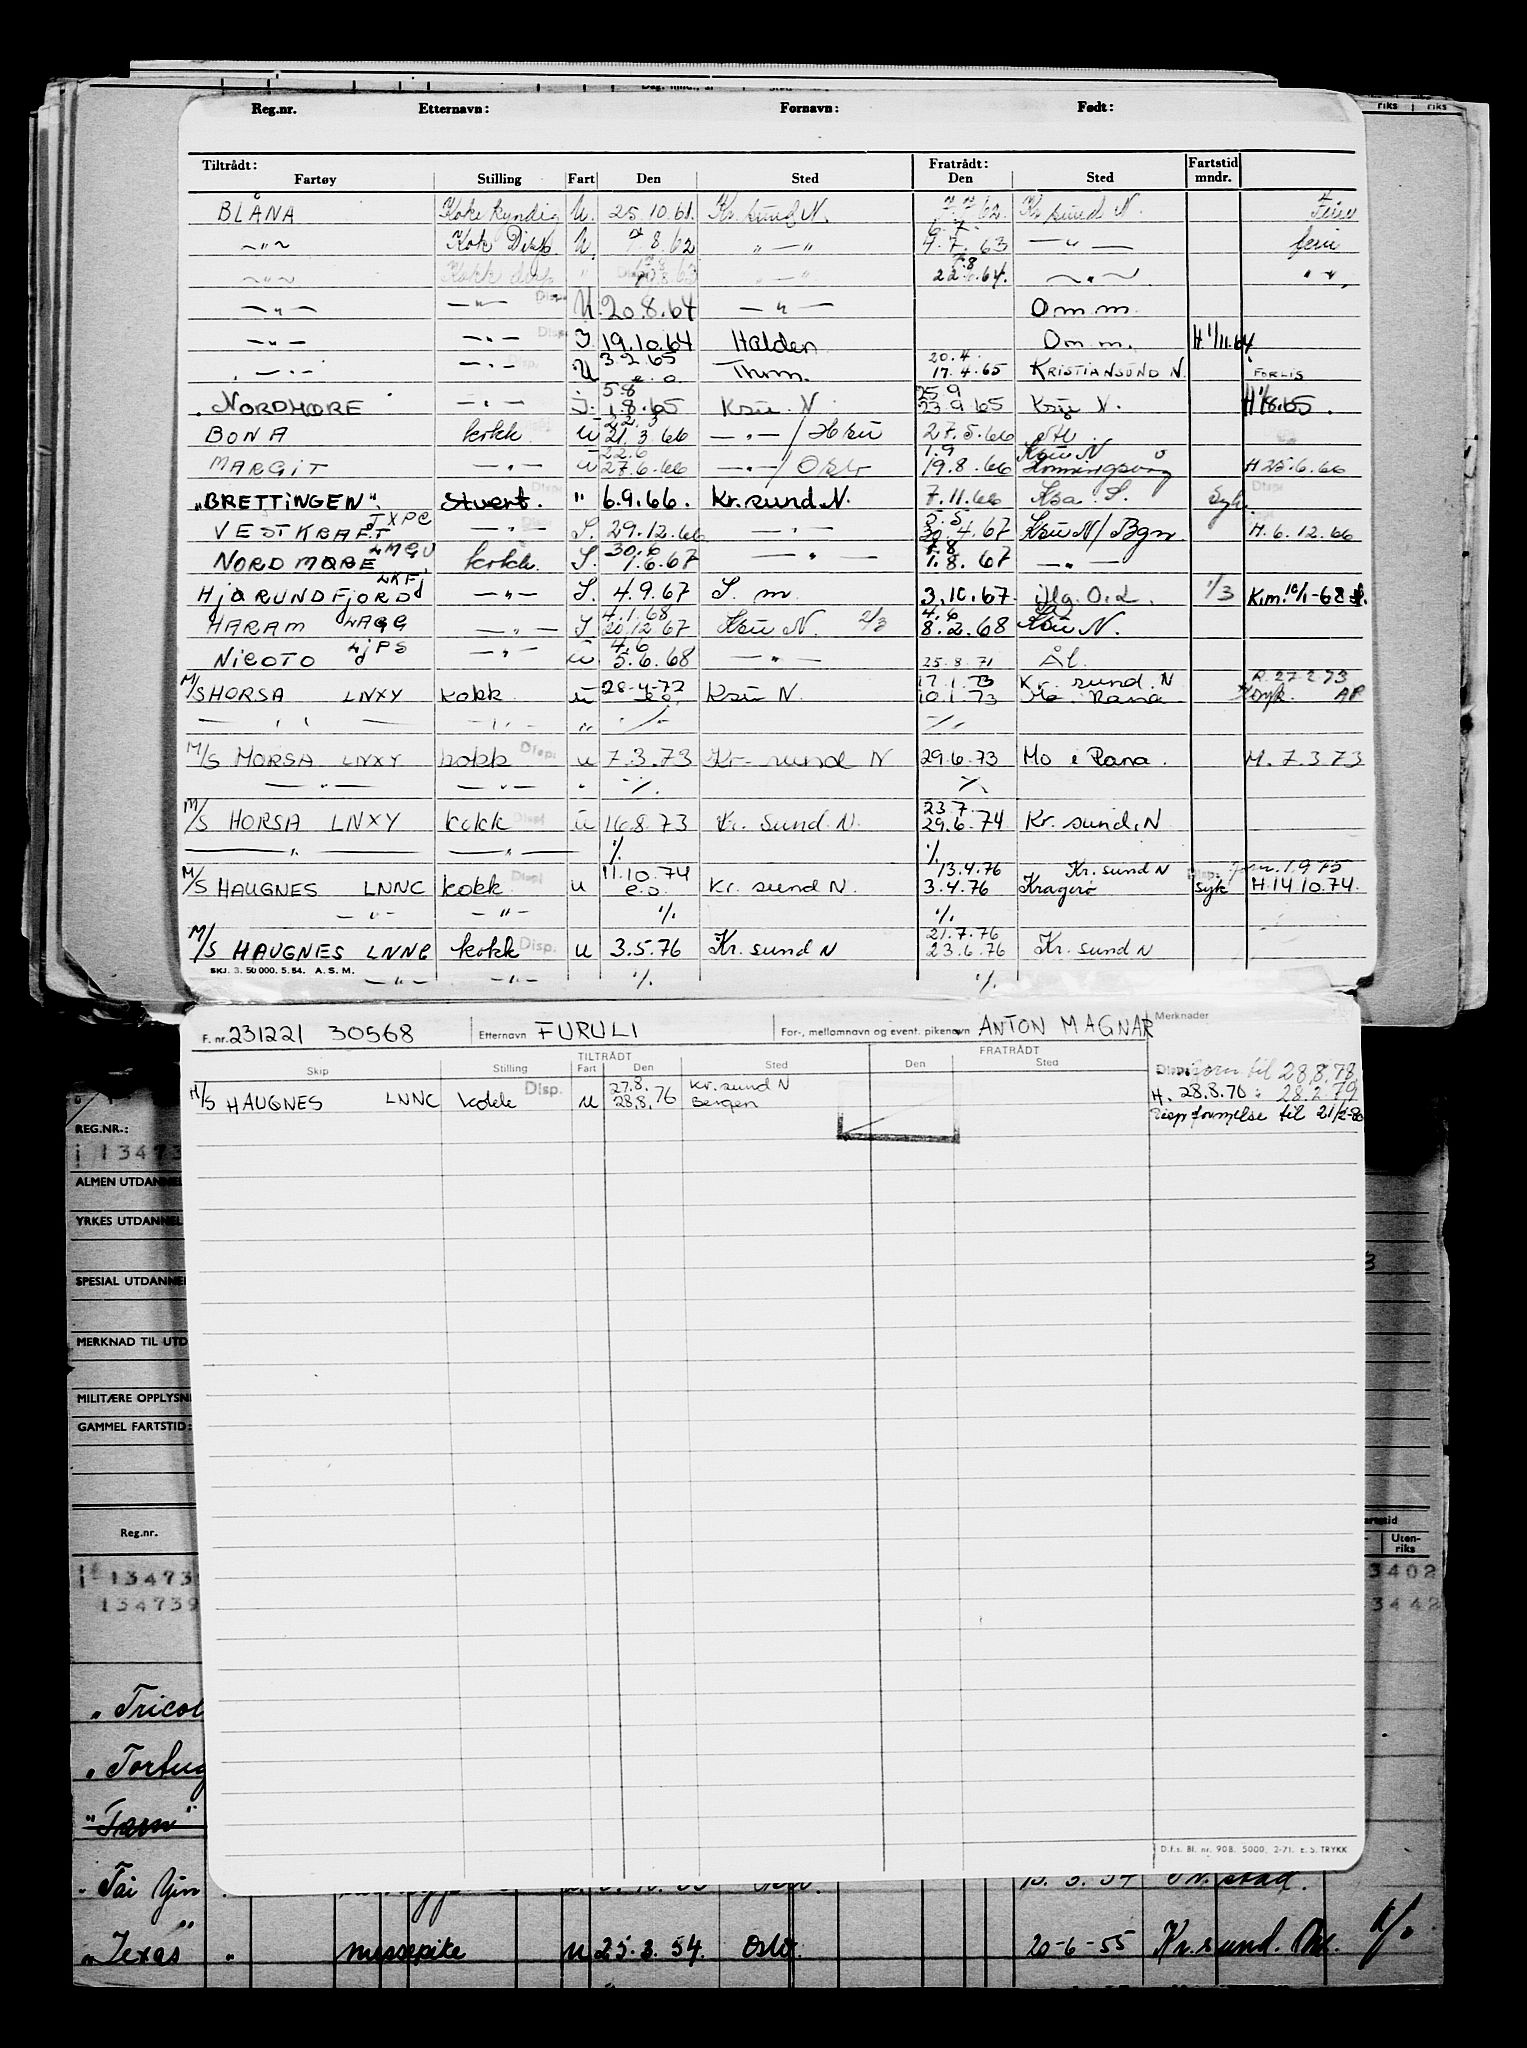 Reg.nr. Etternavn: Fornavn: Født:
Tiltrådt: Fratrådt: Fartstid
Fartøy Stilling Fart Den Sted Den Sted mndr.
BLÅNA Kokekyndig U. 25.10.61. Kr.sund N. 7.7.62. Kr sund N.
6.7.
Kok Disp. U. 8.62 " — " 4.7.63 — " — ferie
7.8
22.64.
— " — — " — Disp. U. 20.8.64 — " — Om m.
— " — — " — Disp. I. 19.10.64 Halden Om m. H 1/11.64
3.2.65 20.4.
— " — — " — U e.o. Thm. 17.4.65 KRISTIANSUND N. FORLIS
5.8 25 9
NORDMØRE — " — I. 1.8.65 Ksu. N 23.9.65 Ksu N. H 1/8.65.
22.3
BONA kokk U 21.3.66 — " — / 27.5.66
22.6 1.9 Ksu N
MARGIT — " — U 27.6.66 — " — / Oslo 19.8.66 Honningsvåg H 25.6.66
"BRETTINGEN" Stuert. " 6.9.66. Kr.sund N. 7.11.66 Ksa. S. Syk.
JXPC 5.5
VESTKRAFT — " — I. 29.12.66 — " — 30.4.67 Ksu N/Bgn H. 6.12.66
LMGU 30.6 7.8
NORDMØRE kokk I. 1.6.67 — " — 1.8.67 — " —
LKFJ
HJØRUNDFJORD — " — I. 4.9.67 S. m. 3.10.67. 1/3
4.1.68 4.6
HARAM LAGG — " — I 20.12 67 Ksu N. 2/3 8.2.68 Ksu N.
LJPS 4.6
NICOTO — " — U 5.6.68 — " — 25.8.71 Ål.
28-4-72 17.1.73 Kr. sund. N R.27.2.73
M/S HORSA LNXY kokk U e.o. Ksu N. 10.1.73 Mo i Rana syk. AP
— " — — " — " ·/. ·/.
M/S HORSA LNXY kokk Disp. u 7.3.73 Kr. sund N 29.6.73 Mo i Rana. M. 7.3 73
— " — — " — " ·/. ·/.
23.7.
M/S HORSA LNXY kokk Disp. u 16.8.73 Kr. Sund. N. 29.6.74 Kr. sund, N
— " — — " — ·/. ·/.
11.10.74 13.4.76 Kr. sund N
M/S HAUGNES LNNC kokk Disp. u e.o. Kr. sund N. 3.4.76 Kragerø syk H.14 10.74.
— " — — " — ·/. ·/.
21.7.76
M/S HAUGNES LNNC kokk Disp. U 3.5.76 Kr. sund N 23.6.76 Kr. sund N
SKJ. 3. 50 000. 5.54. A.S.M.
— " — — " — ·/. ·/.
F. nr. 231221 30568 Etternavn FURULI For-, mellomnavn og event. pikenavn ANTON MAGNAR Merknader
TILTRÅDT FRATRÅDT
Skip Stilling Fart Den Sted Den Sted
Disp. til 28.8.78
27.8. Kr. sund N
M/S HAUGNES LNNC kokk Disp. u 28.8.76 Bergen H. 28.8.78 : 28.2.79
til 21/2-80
REG.NR.:
13473
ALMEN UTDANNEL
YRKES UTDANNEL
SPESIAL UTDANNE
MERKNAD TIL UTD
MILITÆRE OPPLYSNI
GAMMEL FARTSTID:
Reg.nr. Uten-
riks
13473 3402
134739 3442
" Tricol
" Tortug
"Tarn"
D.f.s. Bl. nr. 908. 5000. 2-71. E.S. TRYKK
" Tai Yin
" Texas " messepike U 25.3.54. Oslo. 20-6-55 Kr.sund.